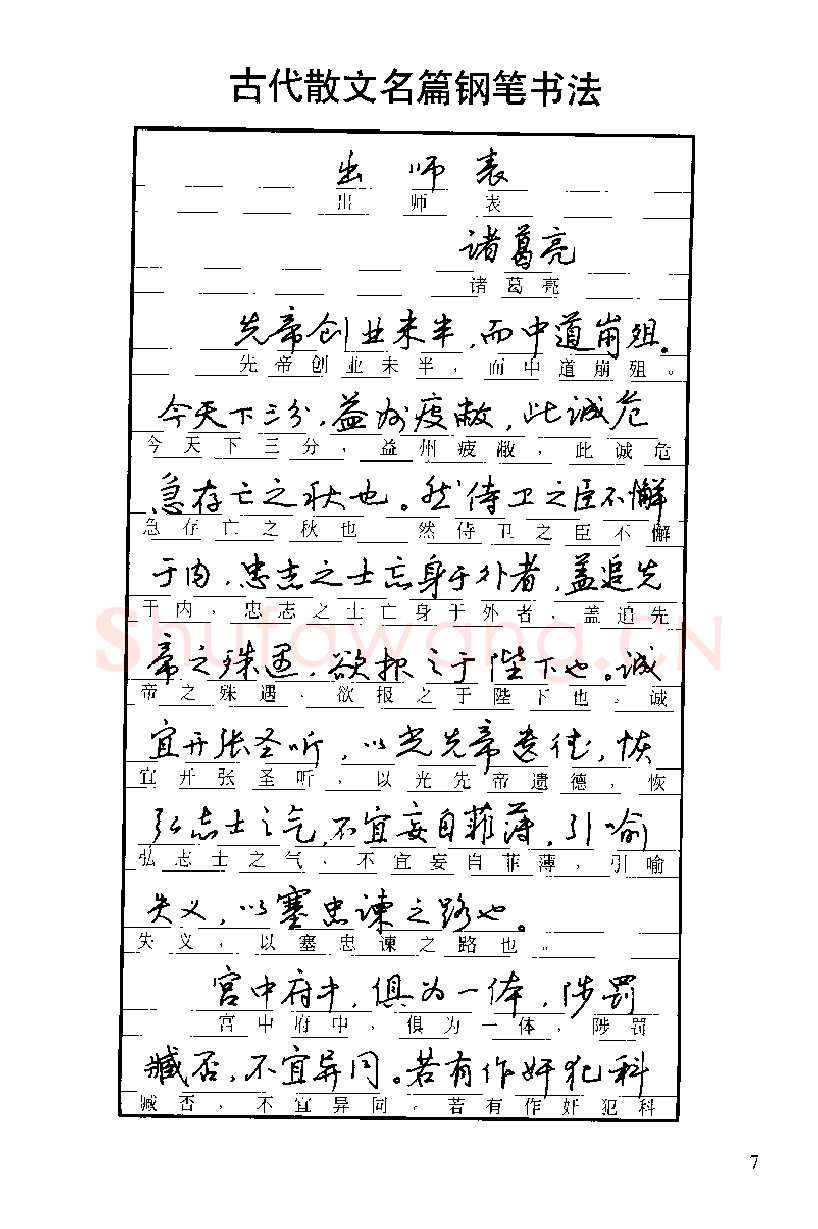 古代散文名篇钢笔书法
出师表
出师表
诸葛亮
诸葛亮
先帝创业未半，而中道崩殂。
先帝创业未半，而中道崩殂。
今天下三分，益州疲敝，此诚危
今天下三分，益州疲敝，此诚危
急存亡之秋也。然侍卫之臣不懈
急存亡之秋也 然侍卫之臣不懈
于内，忠志之士忘身于外者，盖追先
于内，忠志之士亡身于外者，盖追先
Shufawang.CN
帝之殊遇，欲报之于陛下也。诚
帝之殊遇，欲报之于陛下也。诚
宜开张圣听，以光先帝遗德，恢
宜开张圣听，以光先帝遗德，恢
弘志士之气，不宜妄自菲薄，引喻
弘志士之气，不宜妄自菲薄，引喻
失义，以塞忠谏之路也。
失义，以塞忠谏之路也。
宫中府中，俱为一体，陟罚
宫中府中，俱为一体，陟罚
臧否，不宜异同。若有作奸犯科
臧否，不宜异同。若有作奸犯科
7